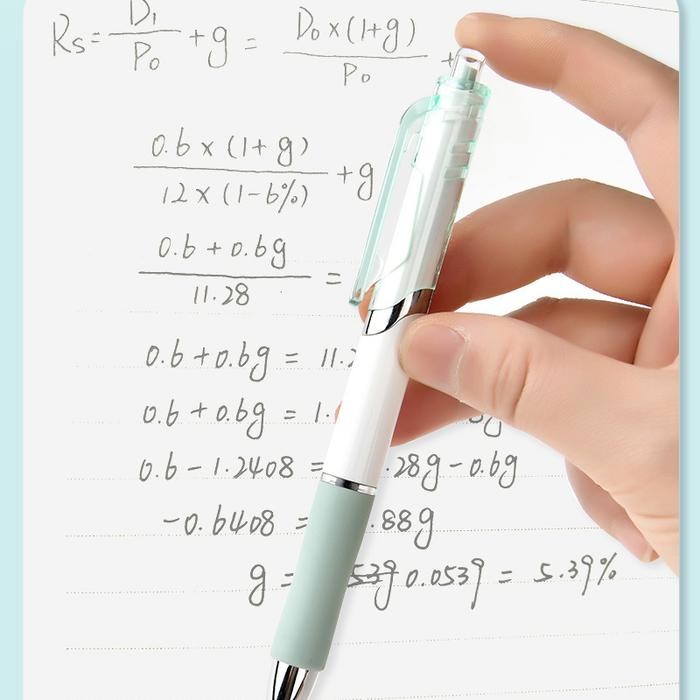 Rs = D₁/P₀ + g = D₀ × (1+g)/P₀ +
0.6 × (1+g)/12 × (1-6%) + g
0.6 + 0.6g/11.28 =
0.6 + 0.6g = 11.2
0.6 + 0.6g = 1.
0.6 - 1.2408 = .28g - 0.6g
-0.6408 = .88g
g = 0.0539 = 5.39%